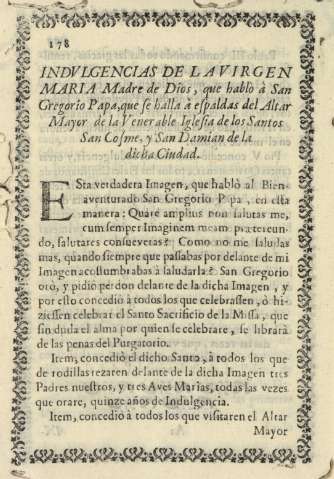 178
INDVLGENCIAS DE LA VIRGEN
MARIA Madre de Dios, que hablò à San
Gregorio Papa, que se halla à espaldas del Altar
Mayor de la Venerable Iglesia de los Santos
San Cosme, y San Damian de la
dicha Ciudad.
ESta verdadera Imagen, que hablò al Bien-
aventurado San Gregorio Papa, en esta
manera: Quare amplius non salutas me,
cum semper Imaginem meam prætereun-
do, salutares consueveras? Como no me saludas
mas, quando siempre que passabas por delante de mi
Imagen acostumbrabas à saludarla? San Gregorio
orò, y pidiò perdon delante de la dicha Imagen, y
por esto concediò à todos los que celebrassen, ò hi-
ziessen celebrar el Santo Sacrificio de la Missa, que
sin duda el alma por quien se celebrare, se librarà
de las penas del Purgatorio.
Item, concediò el dicho Santo, à todos los que
de rodillas rezaren delante de la dicha Imagen tres
Padres nuestros, y tres Aves Marias, todas las vezes
que orare, quinze años de Indulgencia.
Item, concediò à todos los que visitaren el Altar
Mayor